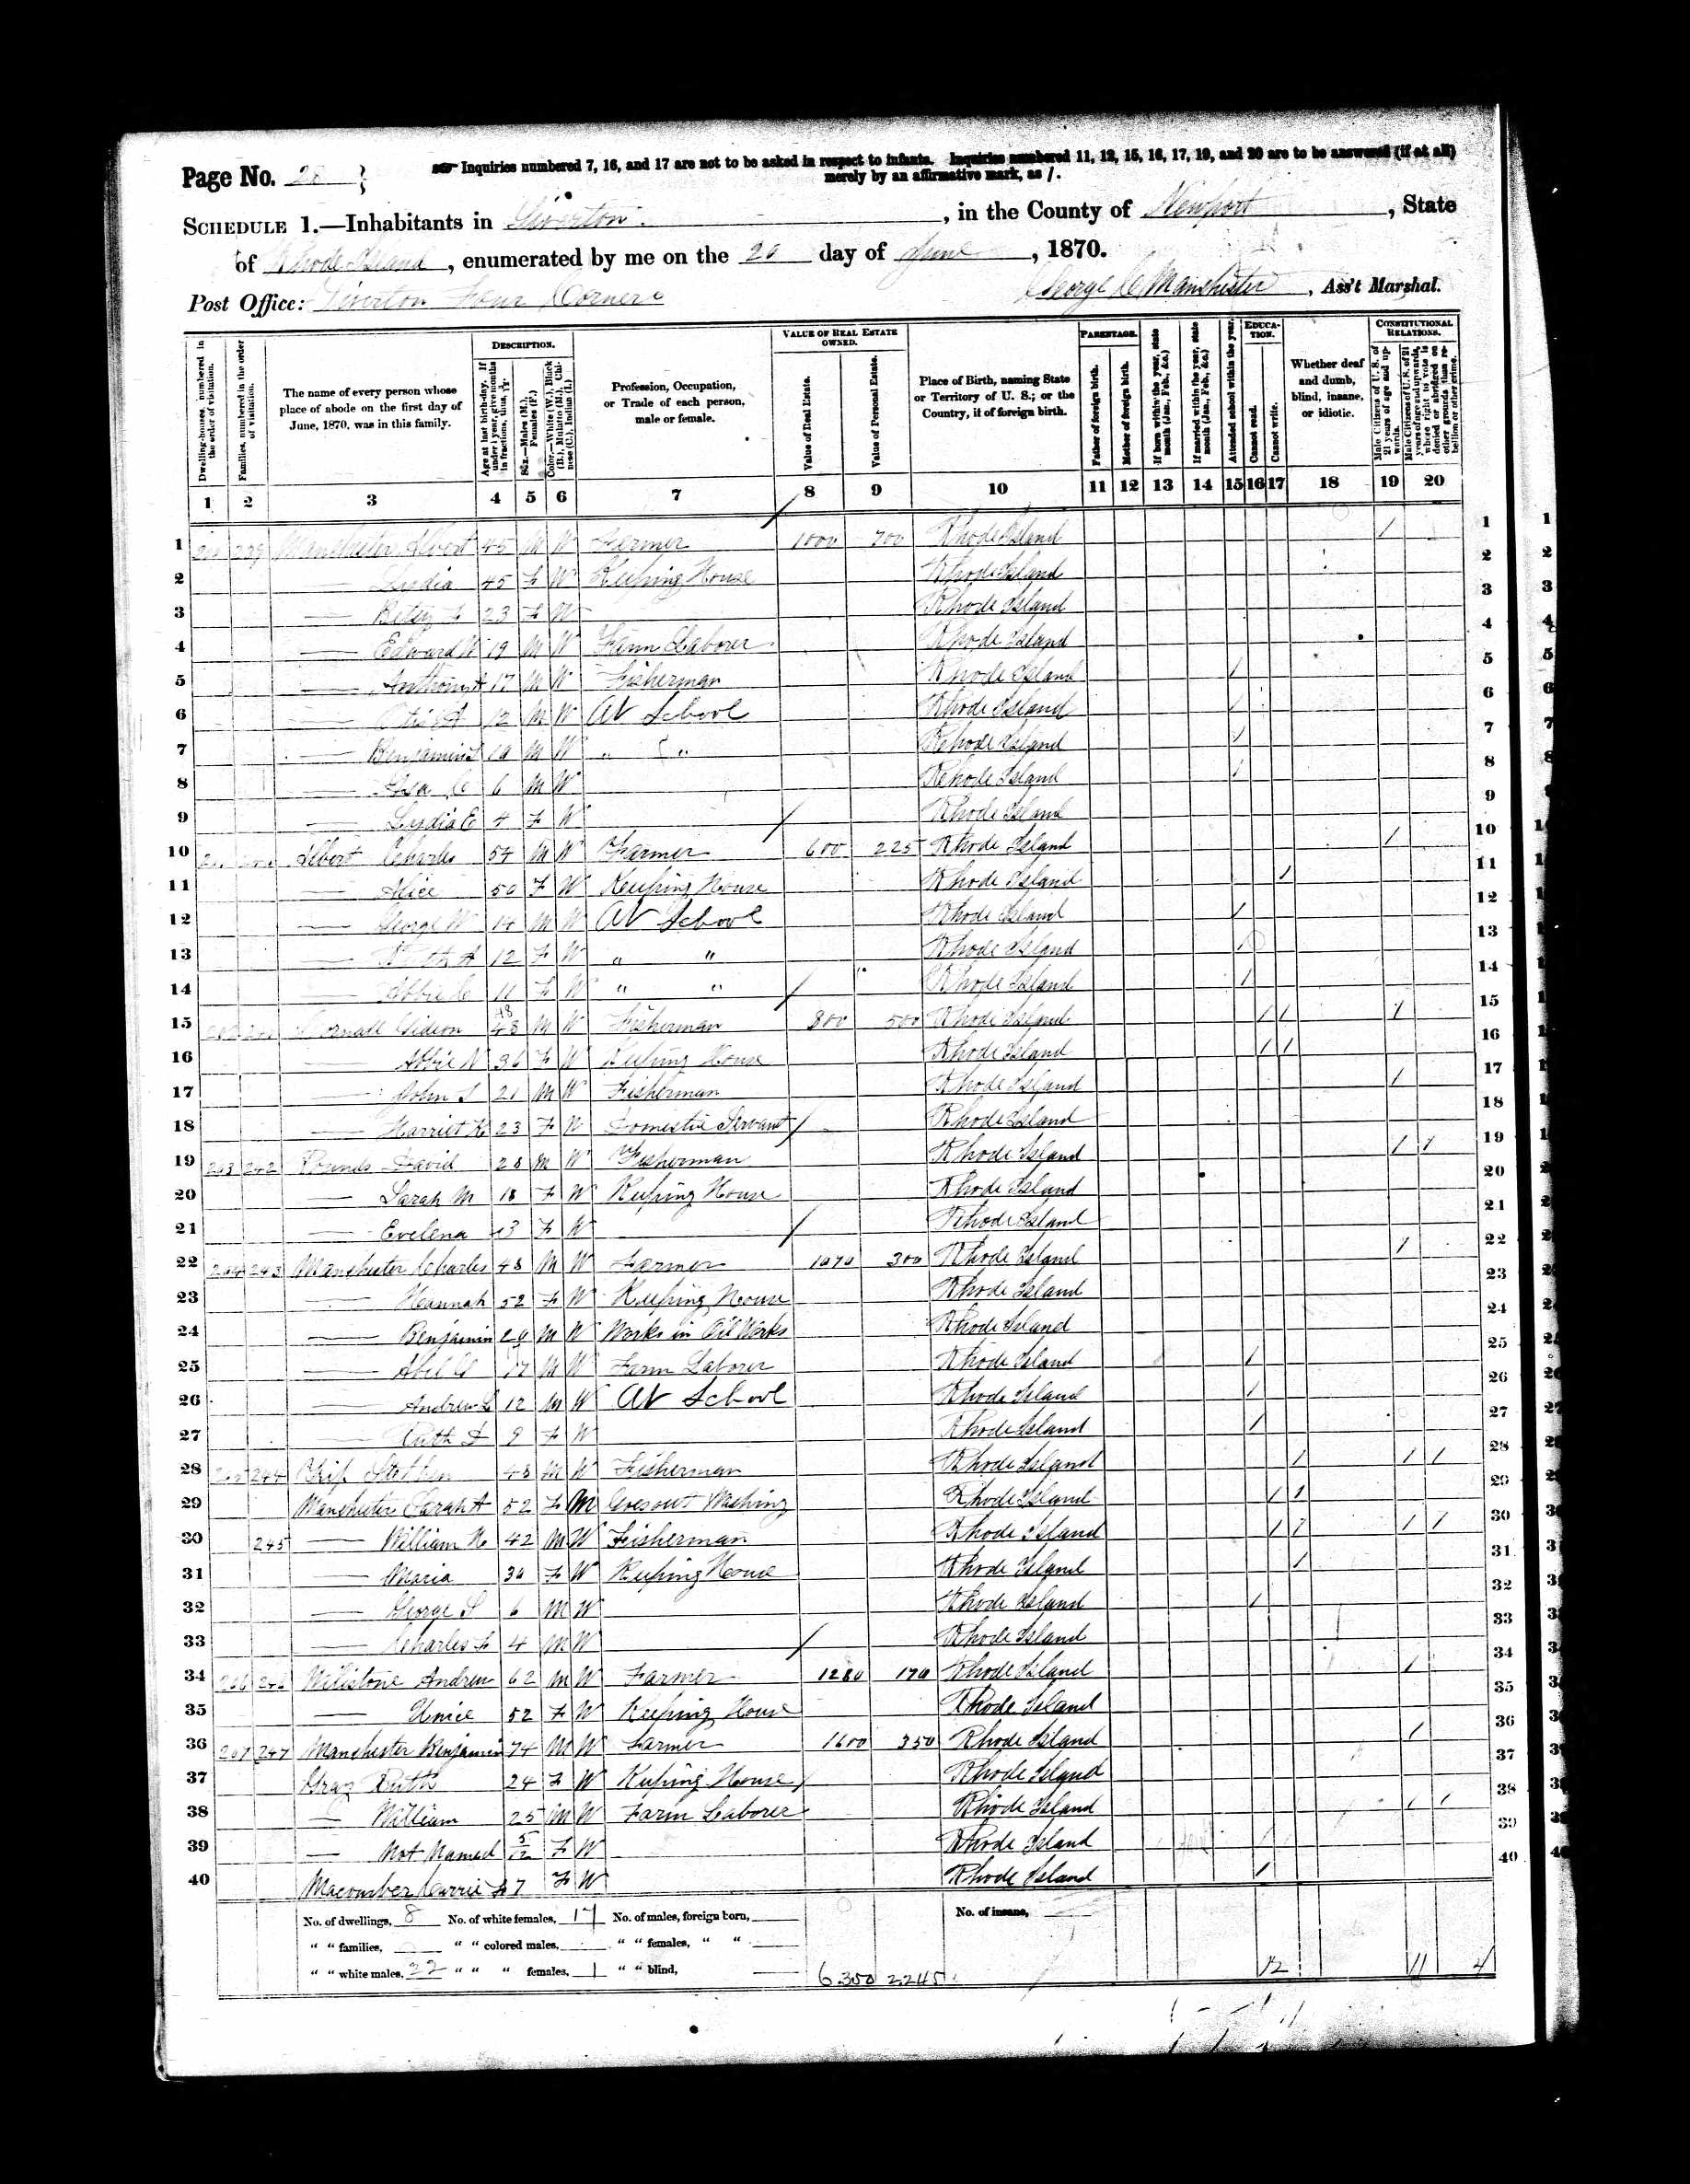 Page No. 28
Inquiries numbered 7, 16, and 17 are not to be asked in respect to infants. Inquiries numbered 11, 12, 15, 16, 17, 19, and 20 are to be answered (if at all)
merely by an affirmative mark, as /.
SCHEDULE 1.—Inhabitants in Tiverton, in the County of Newport, State
of Rhode Island, enumerated by me on the 20 day of June, 1870.
Post Office: Tiverton Four Corners
George C Manchester, Ass't Marshal.
Dwelling-houses, numbered in the order of visitation.
Families, numbered in the order of visitation.
The name of every person whose place of abode on the first day of June, 1870, was in this family.
DESCRIPTION.
Age at last birth-day. If under 1 year, give months in fractions, thus, 3/12.
Sex.—Males (M.), Females (F.)
Color.—White (W.), Black (B.), Mulatto (M.), Chinese (C.), Indian (I.)
Profession, Occupation, or Trade of each person, male or female.
VALUE OF REAL ESTATE OWNED.
Value of Real Estate.
Value of Personal Estate.
Place of Birth, naming State or Territory of U. S.; or the Country, if of foreign birth.
PARENTAGE.
Father of foreign birth.
Mother of foreign birth.
If born within the year, state month (Jan., Feb., &c.)
If married within the year, state month (Jan., Feb., &c.)
Attended school within the year.
EDUCATION.
Cannot read.
Cannot write.
Whether deaf and dumb, blind, insane, or idiotic.
CONSTITUTIONAL RELATIONS.
Male Citizens of U. S. of 21 years of age and upwards.
Male Citizens of U. S. of 21 years of age and upwards, whose right to vote is denied or abridged on other grounds than rebellion or other crime.
1 2 3 4 5 6 7 8 9 10 11 12 13 14 15 16 17 18 19 20
1 239 Manchester Albert 45 M W Farmer 1000 700 Rhode Island / 1
2 — Lydia 45 F W Keeping House Rhode Island 2
3 — Betsy F 23 F W Rhode Island 3
4 — Edward W 19 M W Farm Laborer Rhode Island 4
5 — Anthony A 17 M W Fisherman Rhode Island / 5
6 — Otis A 12 M W At School Rhode Island / 6
7 — Benjamin 10 M W " " Rhode Island / 7
8 — Asa C 6 M W Rhode Island / 8
9 — Lydia E 4 F W Rhode Island 9
10 Albert Charles 54 M W Farmer 600 225 Rhode Island / 10
11 — Alice 50 F W Keeping House Rhode Island / 11
12 — George W 14 M W At School Rhode Island / 12
13 — Ruth A 12 F W " " Rhode Island / 13
14 — Abbie C 11 F W " " Rhode Island / 14
15 Gideon 48 M W Fisherman 800 500 Rhode Island / / / 15
16 — Abbie N 36 F W Keeping House Rhode Island / / 16
17 — John S 21 M W Fisherman Rhode Island / 17
18 — Harriet 23 F W Domestic Servant Rhode Island 18
19 203 242 Rounds David 28 M W Fisherman Rhode Island / / 19
20 — Sarah M 18 F W Keeping House Rhode Island 20
21 — Evelena F W Rhode Island 21
22 204 243 Manchester Charles 48 M W Farmer 1070 300 Rhode Island / 22
23 — Hannah 52 F W Keeping House Rhode Island 23
24 — Benjamin M W Works in Oil Works Rhode Island 24
25 — Abel 17 M W Farm Laborer Rhode Island / 25
26 — Andrew L 12 M W At School Rhode Island / 26
27 — Ruth F 9 F W Rhode Island / 27
28 205 244 Stephen 48 M W Fisherman Rhode Island / / / 28
29 Manchester Sarah A 52 F M Goes out Washing Rhode Island / / 29
30 245 — William H 42 M W Fisherman Rhode Island / / / / 30
31 — Maria 30 F W Keeping House Rhode Island / 31
32 — George S 6 M W Rhode Island / 32
33 — Charles F 4 M W Rhode Island 33
34 206 246 Andrew 62 M W Farmer 1280 170 Rhode Island / 34
35 — Unice 52 F W Keeping House Rhode Island 35
36 207 247 Manchester Benjamin 74 M W Farmer 1600 350 Rhode Island / 36
37 Gray Ruth 24 F W Keeping House Rhode Island 37
38 — William 25 M W Farm Laborer Rhode Island / / 38
39 — Not Named 5/12 F W Rhode Island 39
40 Macomber Carrie F 7 F W Rhode Island / 40
No. of dwellings, 8 No. of white females, 17 No. of males, foreign born, No. of insane,
" " families, " " colored males, " " females, " "
" " white males, 22 " " " females, 1 " " blind, 6350 2245 12 11 4